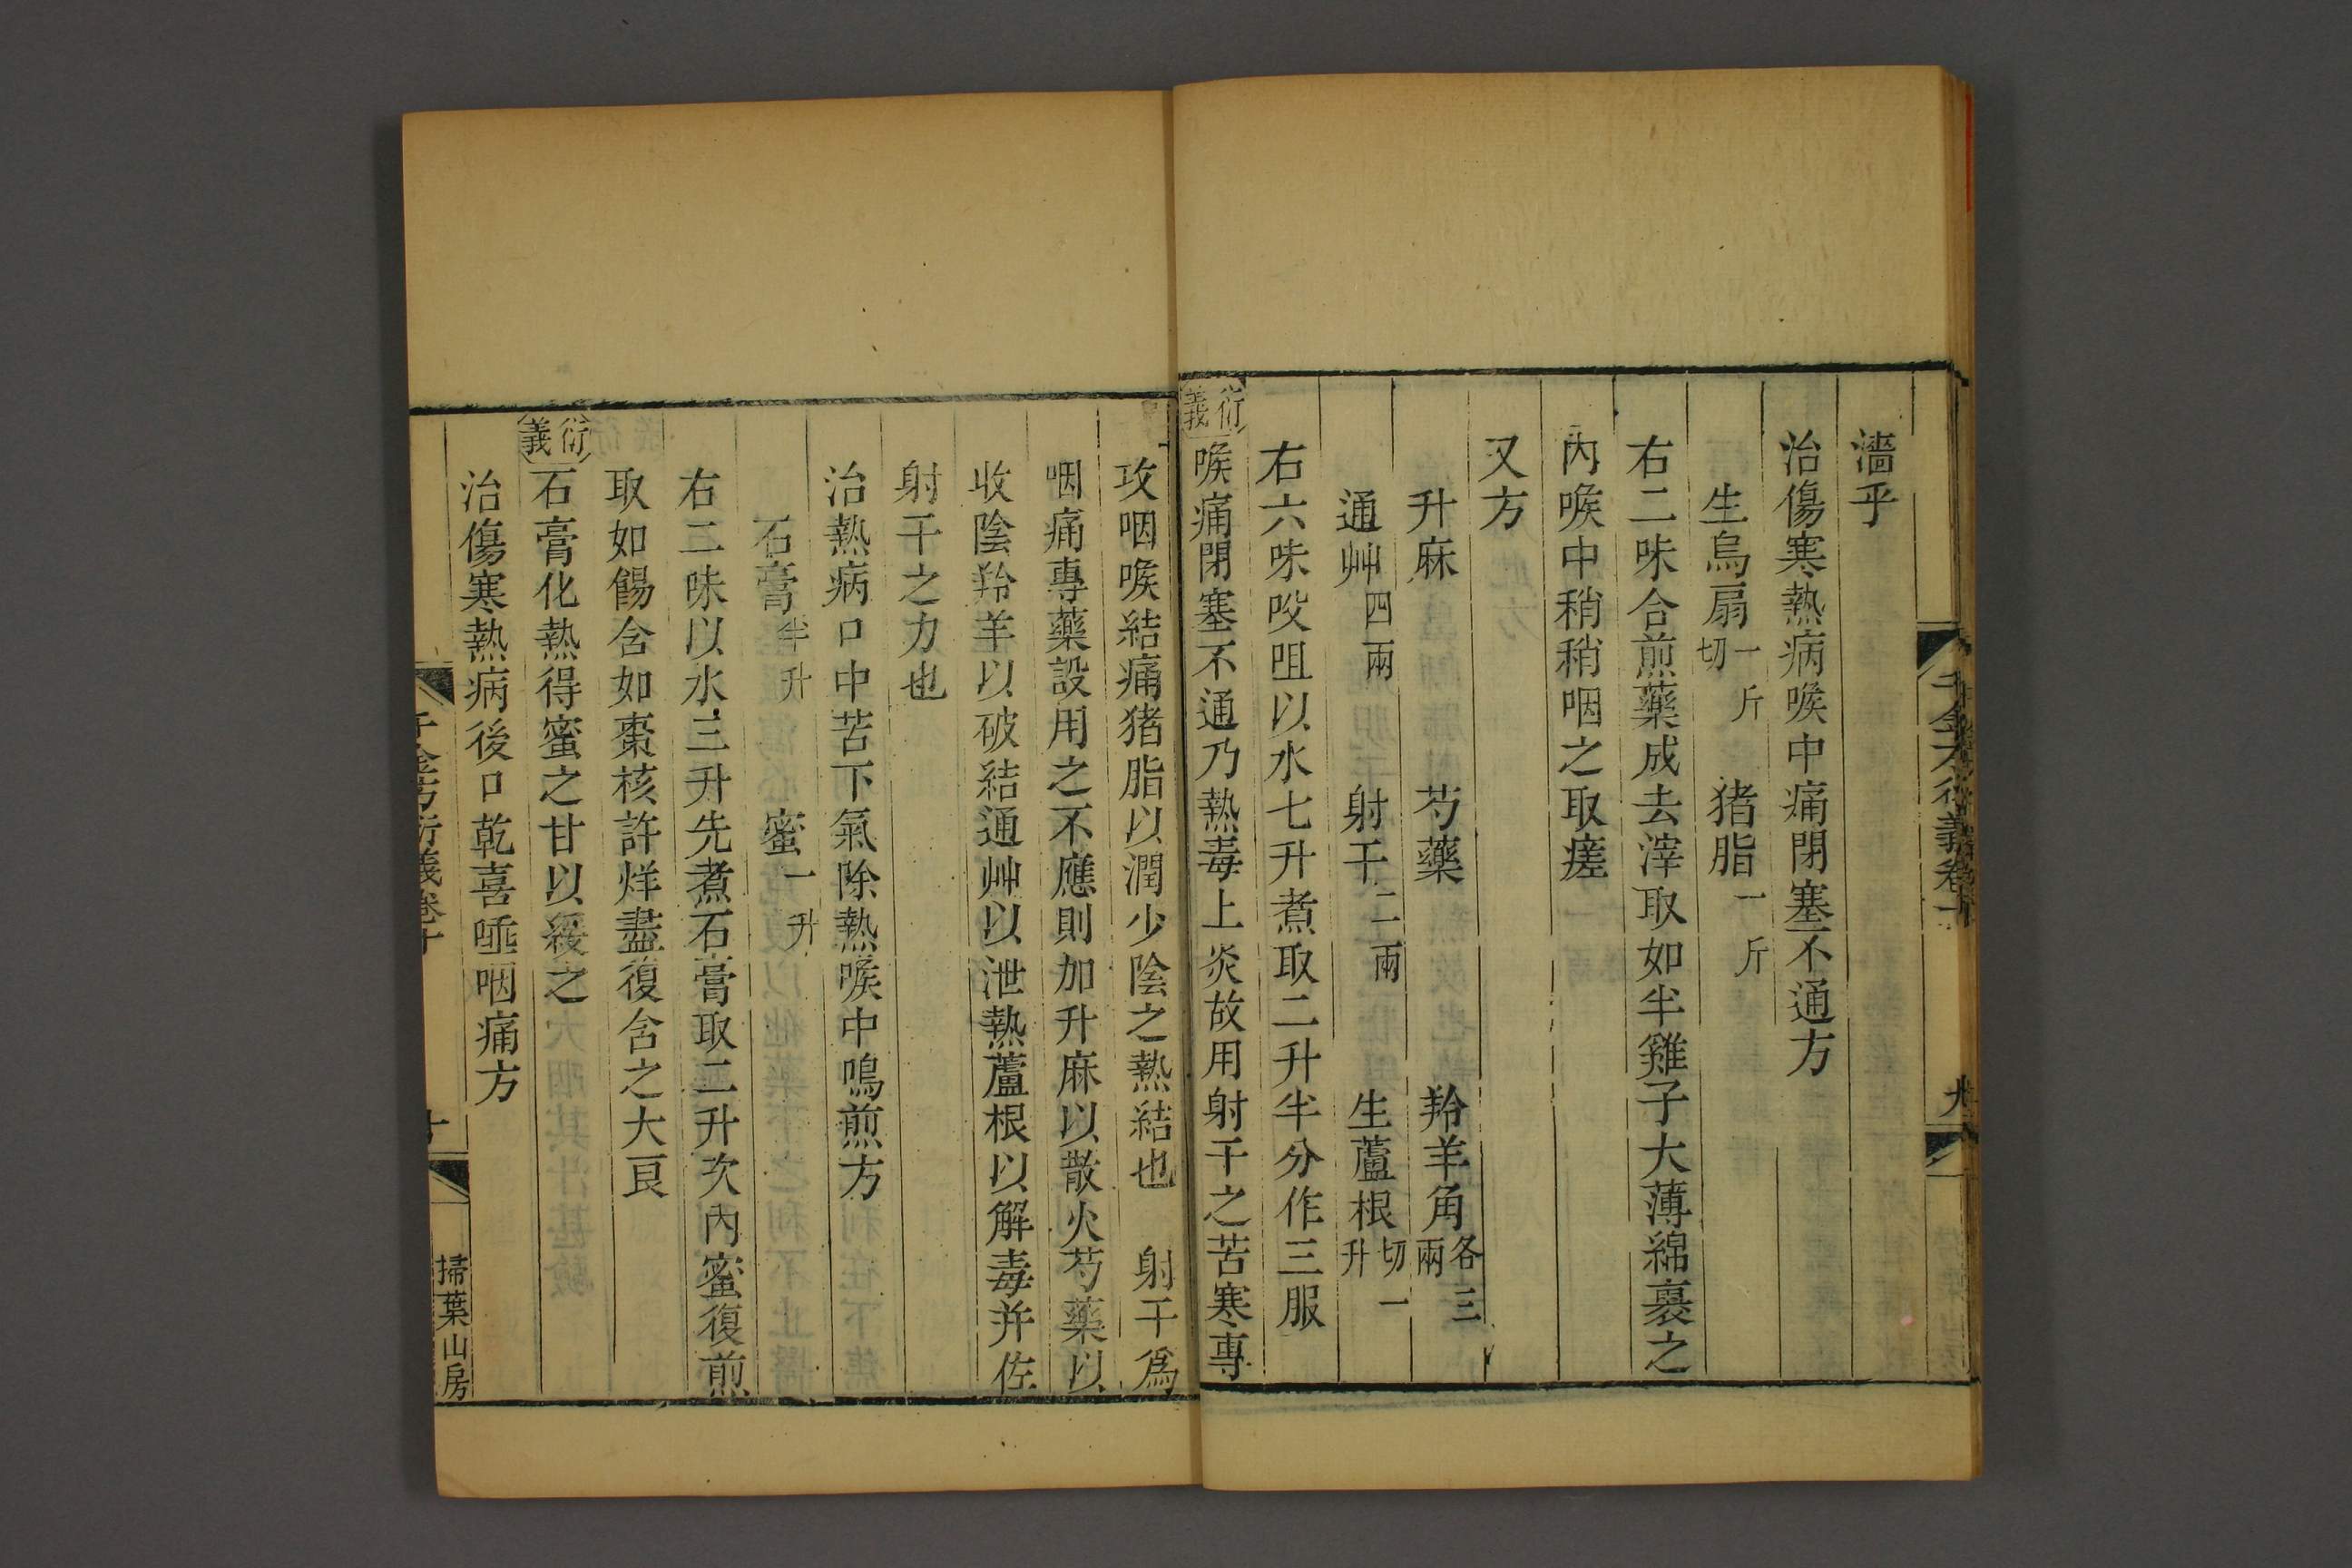 濇乎
治傷寒熱病喉中痛閉塞不通方
生烏扇一斤切　猪脂一斤
右二味合煎藥成去滓取如半雞子大薄綿裹之
內喉中稍稍咽之取瘥
又方
升麻　芍藥　羚羊角各三兩
通艸四兩　射干二兩　生蘆根切一升
右六味㕮咀以水七升煮取二升半分作三服
衍義　喉痛閉塞不通乃熱毒上炎故用射干之苦寒專
攻咽喉結痛猪脂以潤少陰之熱結也　射干爲
咽痛專藥設用之不應則加升麻以散火芍藥以
收陰羚羊以破結通艸以泄熱蘆根以解毒并佐
射干之力也
治熱病口中苦下氣除熱喉中鳴煎方
石膏半升　蜜一升
右二味以水三升先煮石膏取二升次內蜜復煎
取如餳含如棗核許烊盡復含之大良
衍義　石膏化熱得蜜之甘以緩之
治傷寒熱病後口乾喜唾咽痛方
千金方衍義卷十
掃葉山房